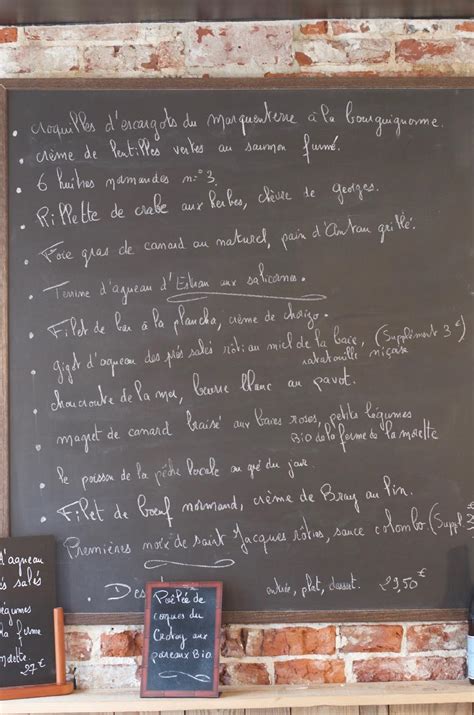 croquilles d'escargots du marquenterre à la bourguignonne.
crème de lentilles vertes au saumon fumé.
6 huîtres normandes n=° 3.
Rillette de crabe aux herbes, chèvre de georges.
Foie gras de canard au naturel, pain d'Antan grillé.
Terrine d'agneau d'Estran aux salicornes.
Filet de bar à la plancha, crème de chorizo.
gigot d'agneau des prés salés rôti au miel de la baie, (Supplément 3€)
ratatouille niçoise
choucroute de la mer, beurre blanc au pavot.
magret de canard braisé aux baies roses, petits légumes
Bio de la ferme de la molette
le poisson de la pêche locale au gré du jour.
Filet de bœuf normand, crème de Bray au lin.
Premières noix de saint Jacques rôties, sauce colombo (Suppl 3
Des
entrée, plat, dessert. 29,50€
d'agneau
és salés
légumes
la ferme
molette.
27€
Poêlée de
coques du
Crotoy aux
poireaux Bio